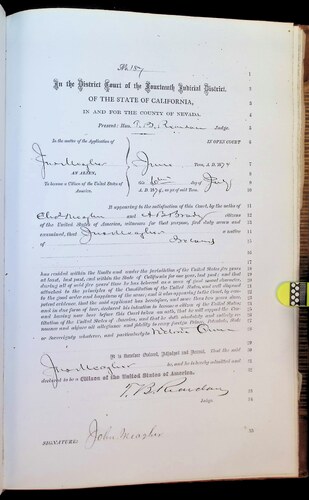 No. 187
In the District Court of the Fourteenth Judicial District.
OF THE STATE OF CALIFORNIA,
IN AND FOR THE COUNTY OF NEVADA.
Present: Hon. T. B. Reardan Judge.
In the matter of the Application of
IN OPEN COURT
Jno Meagher
June Term, A.D. 187
AN ALIEN,
this day of July
To become a Citizen of the United States of America.
A.D. 187, as of said Term.
It appearing to the satisfaction of this Court, by the oaths of
Chas Meagher and citizens
of the United States of America, witnesses for that purpose, first duly sworn and
examined, that Jno Meagher a native
of Ireland
has resided within the limits and under the jurisdiction of the United States five years
at least, last past, and within the State of California for one year, last past; and that
during all of said five years' time he has behaved as a man of good moral character,
attached to the principles of the Constitution of the United States, and well disposed
to the good order and happiness of the same; and it also appearing to the Court, by competent
evidence, that the said applicant has heretofore, and more than two years since,
and in due form of law, declared his intention to become a citizen of the United States
and having now here before this Court taken an oath, that he will support the Constitution
of the United States of America, and that he doth absolutely and entirely renounce
and abjure all allegiance and fidelity to every foreign Prince, Potentate, State
or Sovereignty whatever, and particularly to Victoria Queen
It is therefore Ordered, Adjudged and Decreed, That the said
Jno Meagher be, and he is hereby admitted and
declared to be a Citizen of the United States of America.
T. B. Reardan
Judge.
SIGNATURE: John Meagher